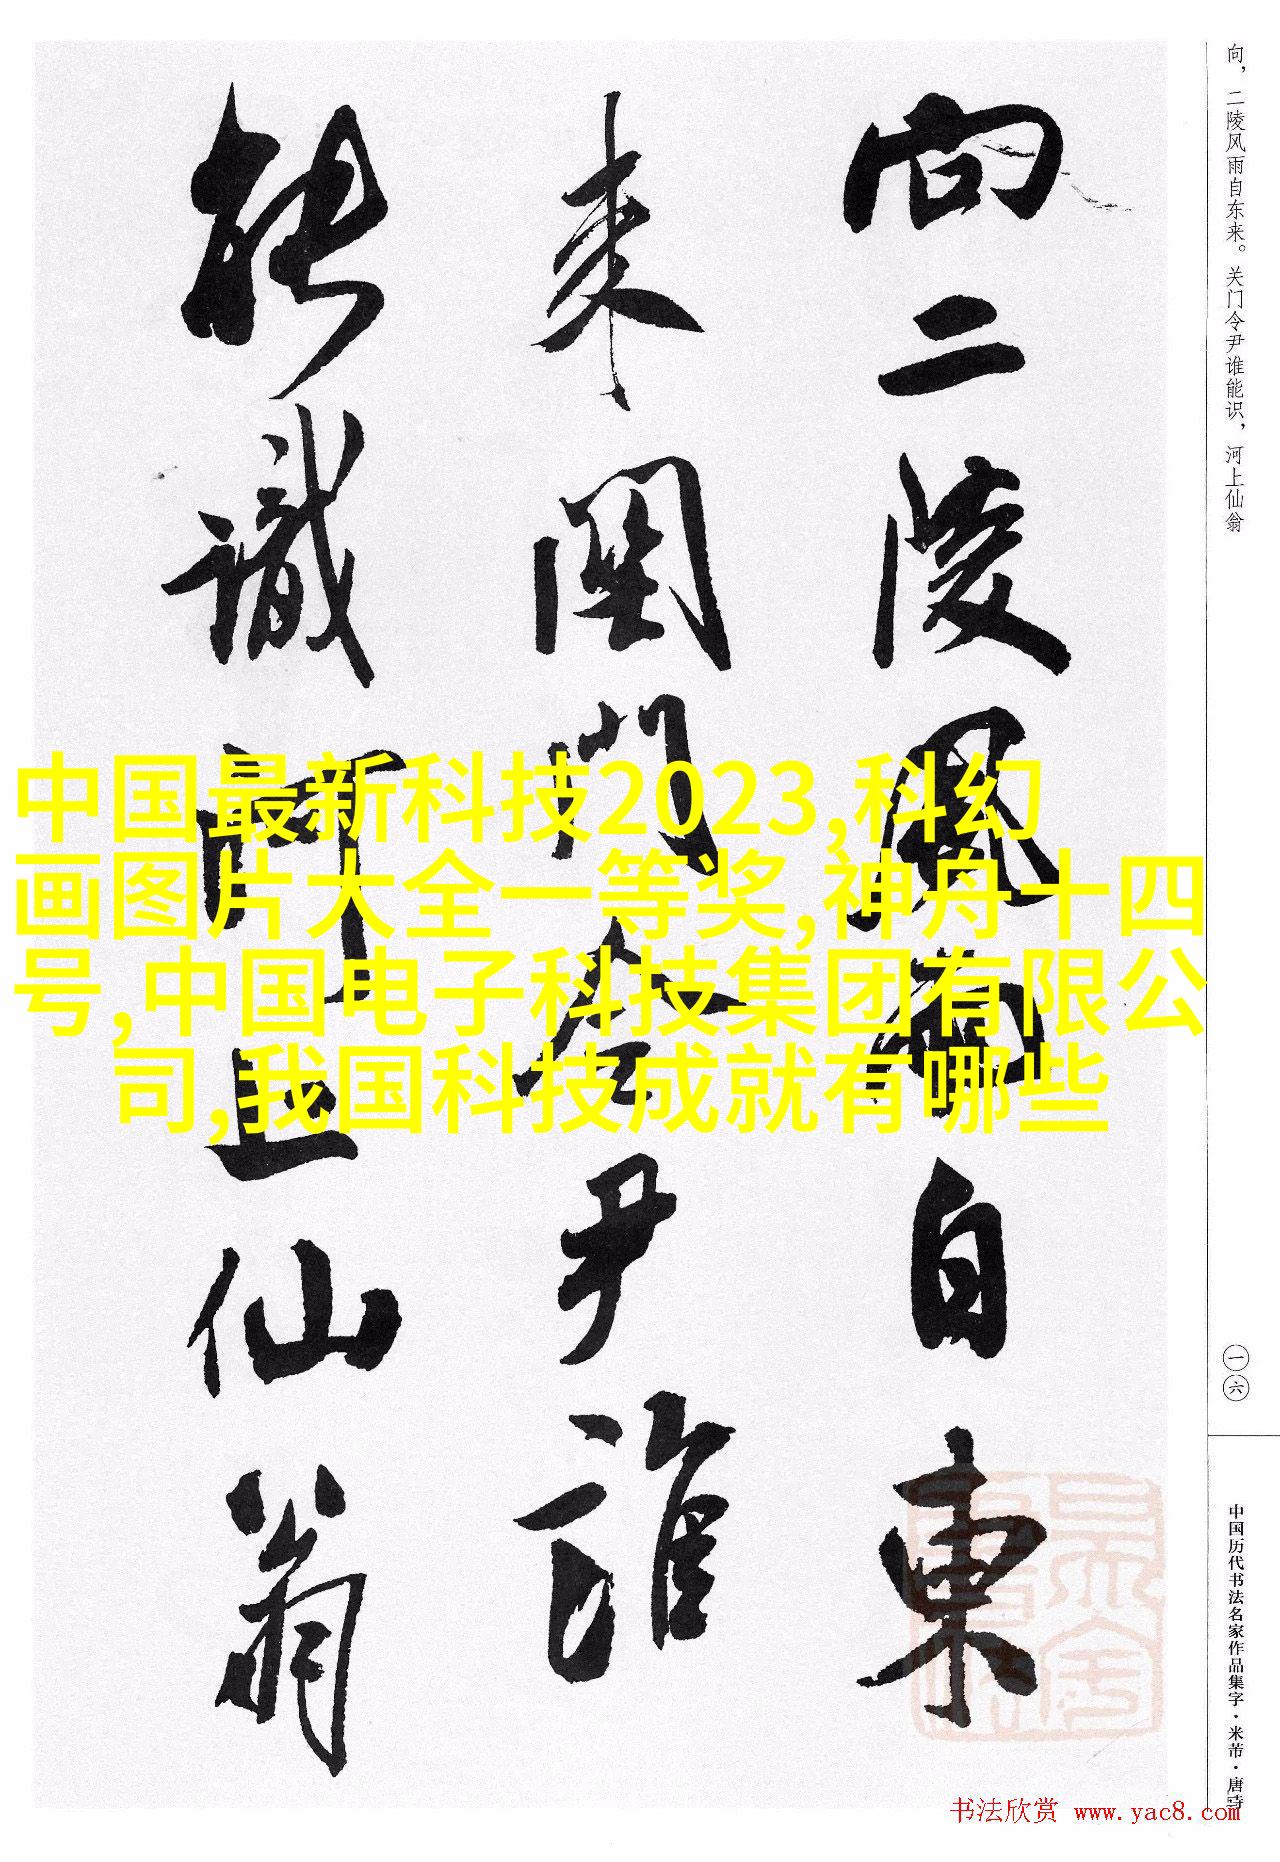 向二陵风雨自东
来关门令尹谁
能识河上仙翁
向，二陵风雨自东来。关门令尹谁能识，河上仙翁
一六
中国历代书法名家作品集字·米芾·唐诗
中国最新科技2023,科幻
画图片大全一等奖,神舟十四
号,中国电子科技集团有限公
司,我国科技成就有哪些
书法欣赏 www.yac8.com